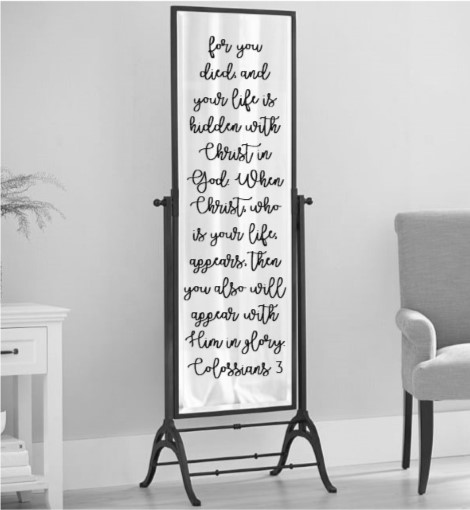 for you
died, and
your life is
hidden with
Christ in
God. When
Christ, who
is your life,
appears, then
you also will
appear with
Him in glory.
Colossians 3